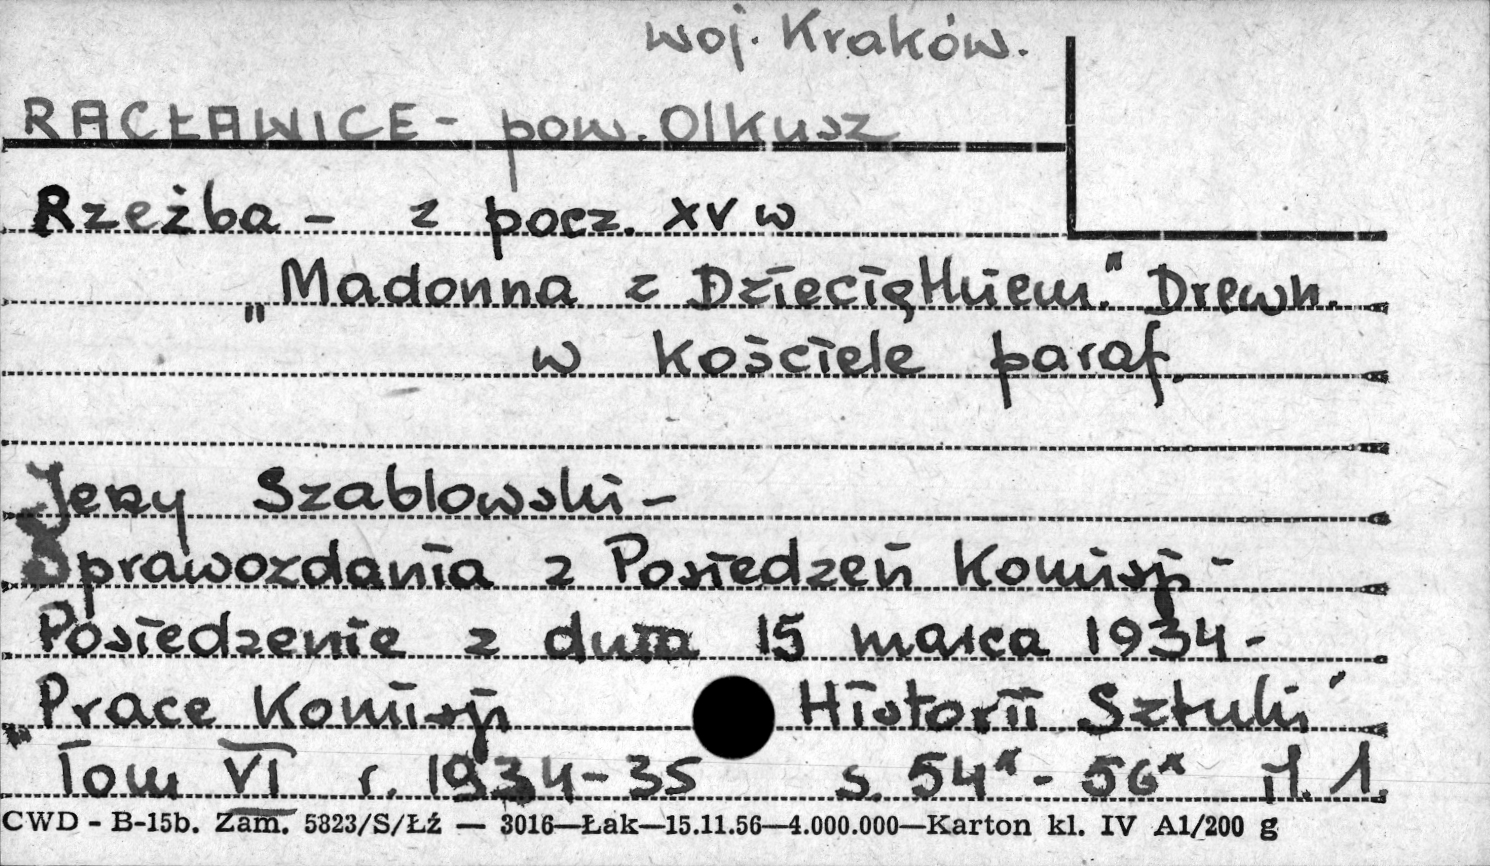 woj. Kraków.
RACŁAWICE - pow. Olkusz
Rzeźba - z pocz. XV w
„Madonna z Dzieciątkiem." Drewn.
w kościele paraf.
Jerzy Szablowski -
Sprawozdania z Posiedzeń Komisji -
Posiedzenie z dnia 15 marca 1934 -
„Prace Komisji Historii Sztuki"
Tom VI r. 1934-35 s. 54* - 56* il. 1.
CWD - B-15b. Zam. 5823/S/Łź — 3016—Łak—15.11.56—4.000.000—Karton kl. IV A1/200 g